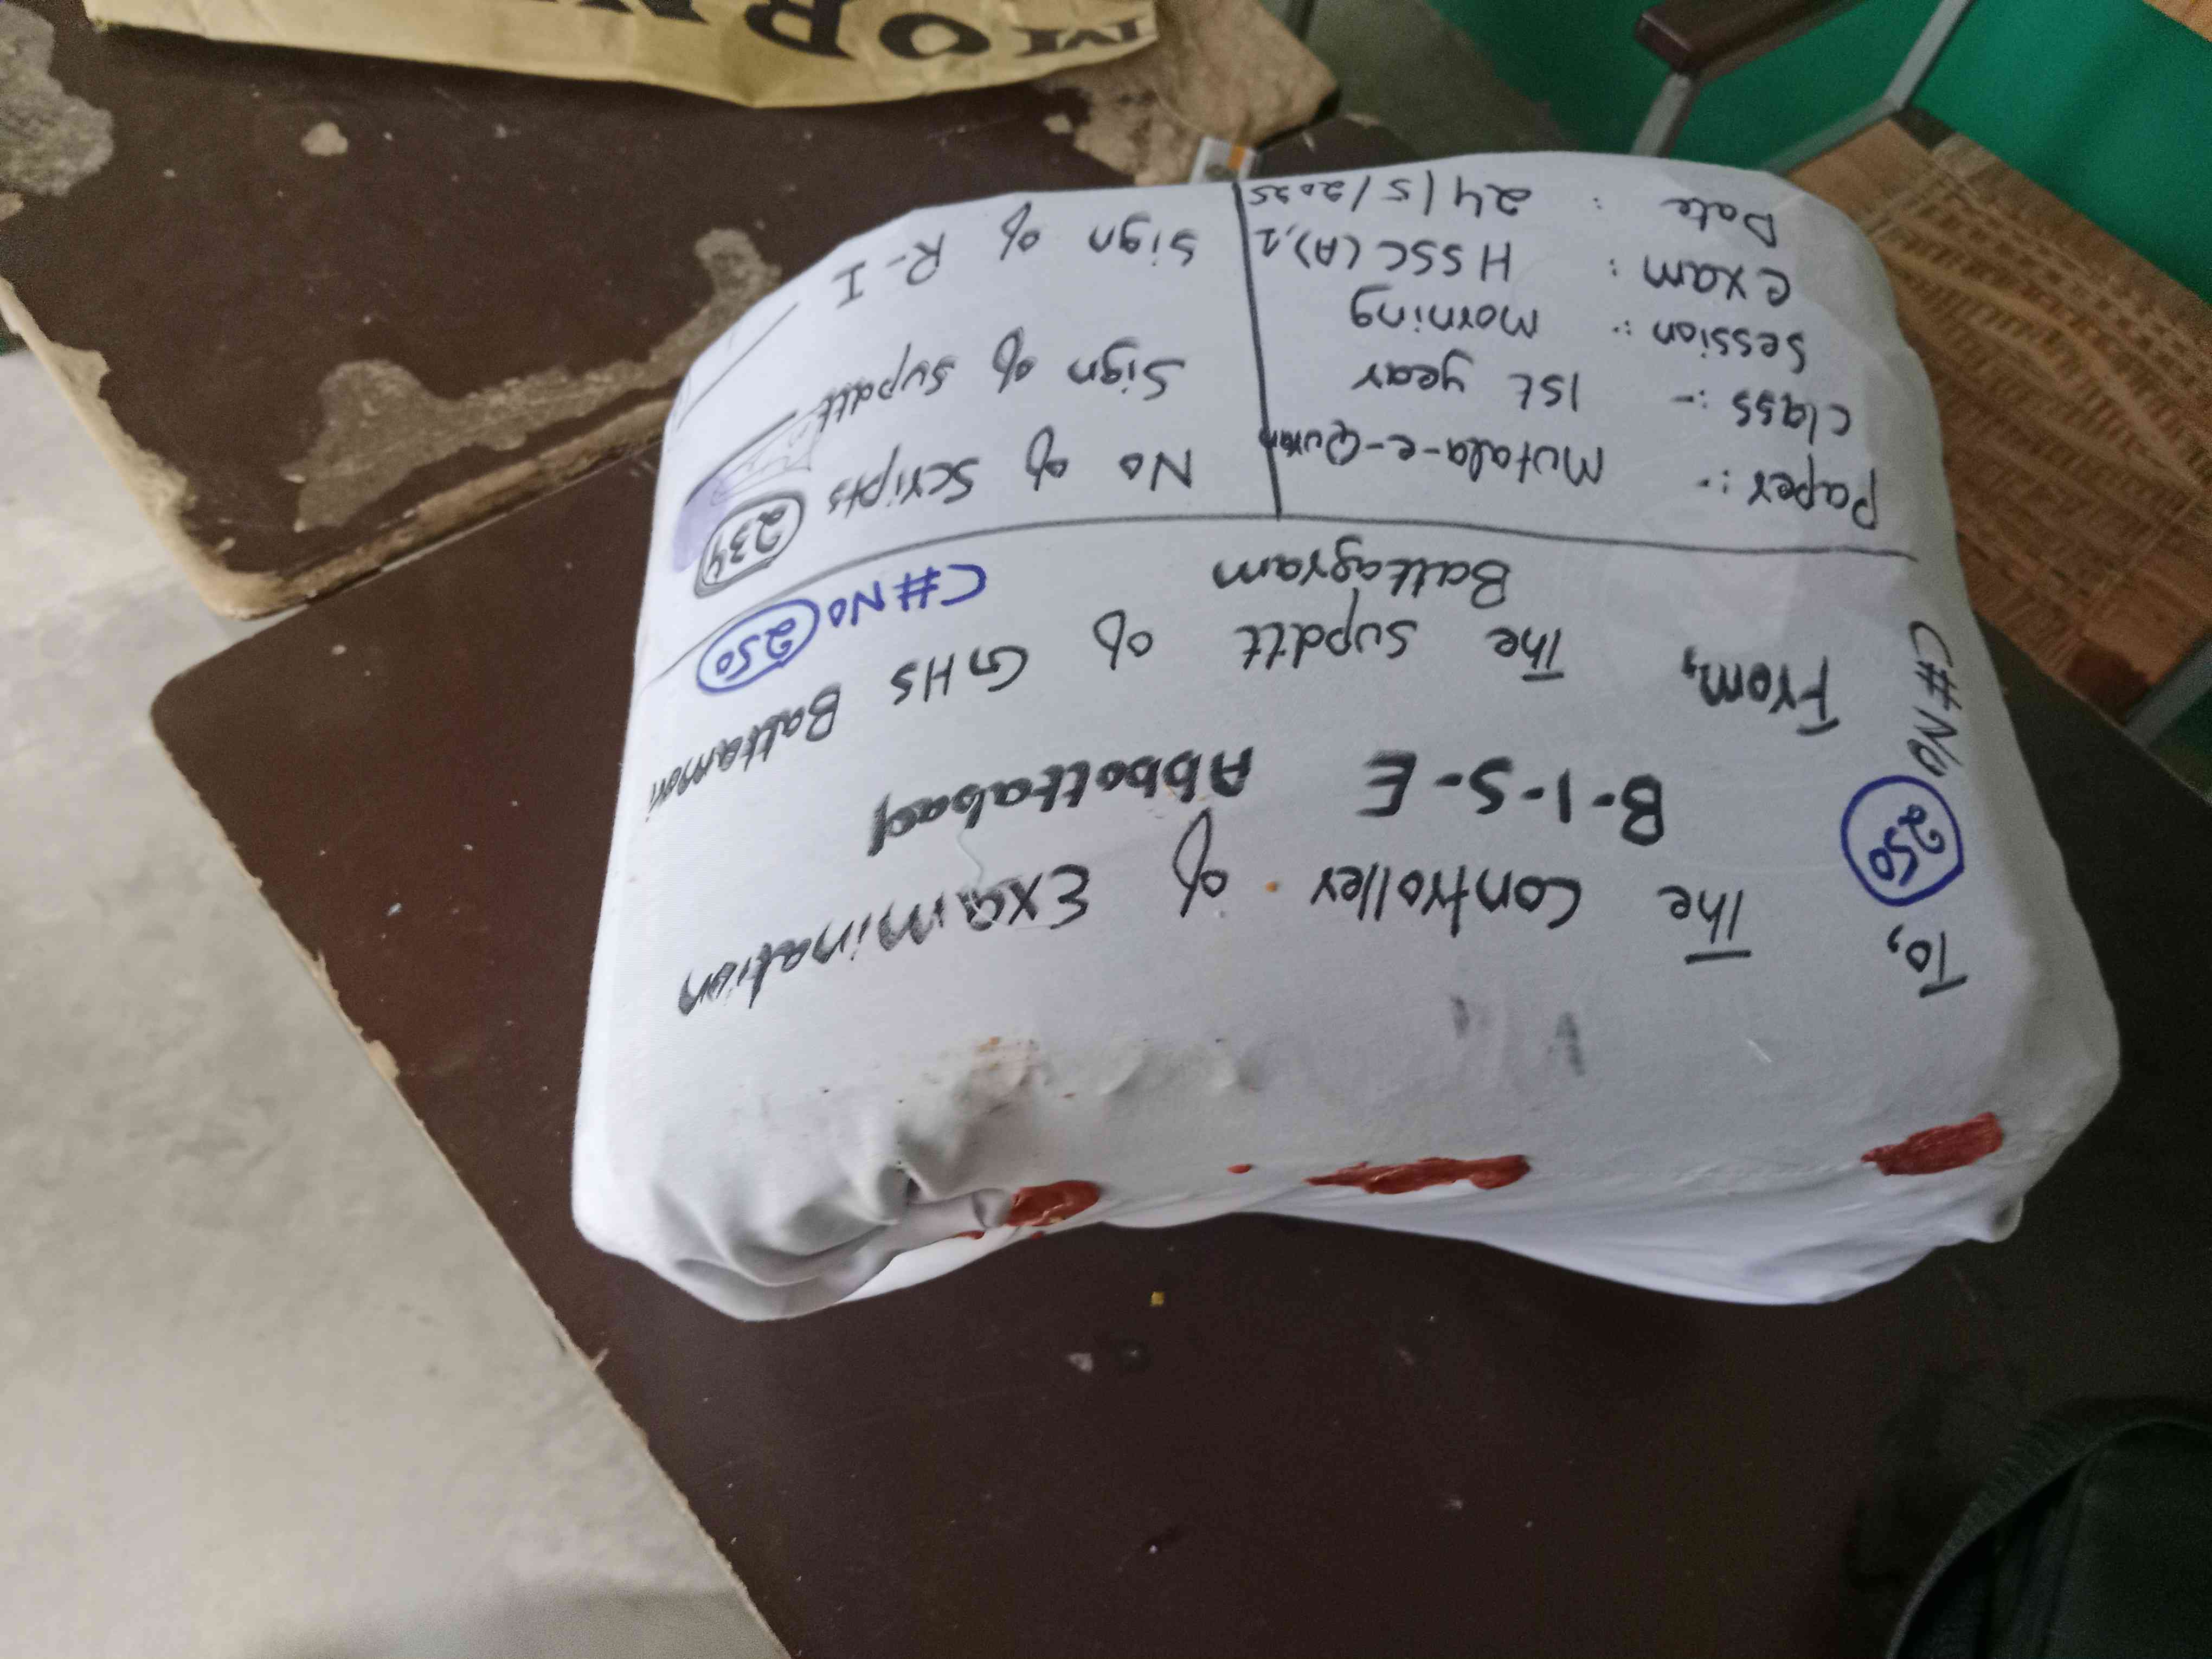 To,
The Controller of Examination
B-I-S-E Abbottabad
C#No 250
From,
The Supdtt of GHS Battamori
Battagram
C#No 250
Paper :- Mutala-e-Quran
Class :- 1st year
Session :- Morning
Exam : HSSC(A),1
Date : 24/5/2025
No of Scripts 234
Sign of Supdtt
Sign of R-I
MOR